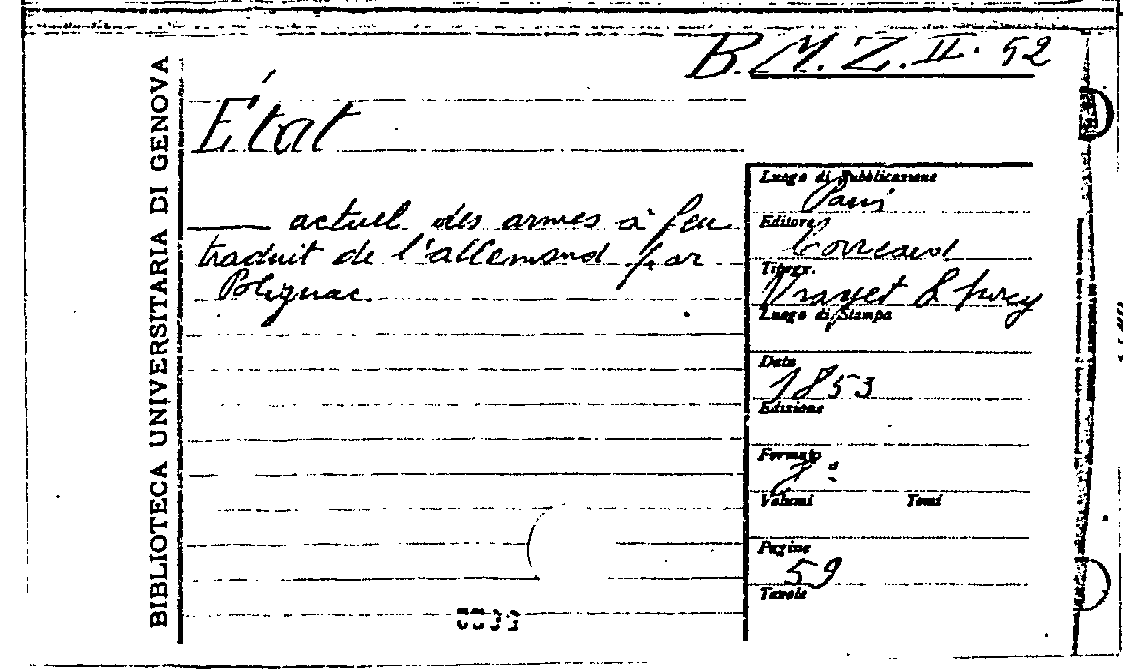 B.M.Z.II.52
BIBLIOTECA UNIVERSITARIA DI GENOVA
État
—— actuel des armes à feu
traduit de l'allemand par
Polignac.
Luogo di Pubblicazione
Paris
Editore
Correard
Tipogr.
Vrayet & Surcy
Luogo di Stampa
Data
1853
Edizione
Formato
Volumi Tomi
Pagine
59
Tavole